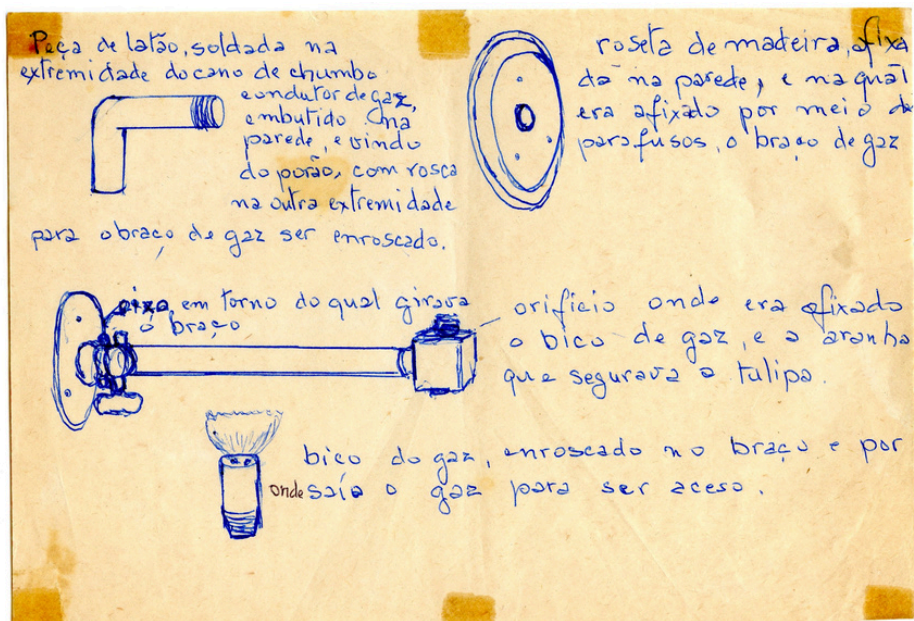 Peça de latão, soldada na
extremidade do cano de chumbo
condutor de gaz,
embutido na
parede, e vindo
do porão, com rosca
na outra extremidade
para o braço de gaz ser enroscado.
roseta de madeira, afixa
da na parede, e na qual
era afixado por meio de
parafusos, o braço de gaz
eixo, em torno do qual girava
o braço
orificio onde era afixado
o bico de gaz, e a aranha
que segurava a tulipa.
bico do gaz, enroscado no braço e por
onde saía o gaz para ser aceso.